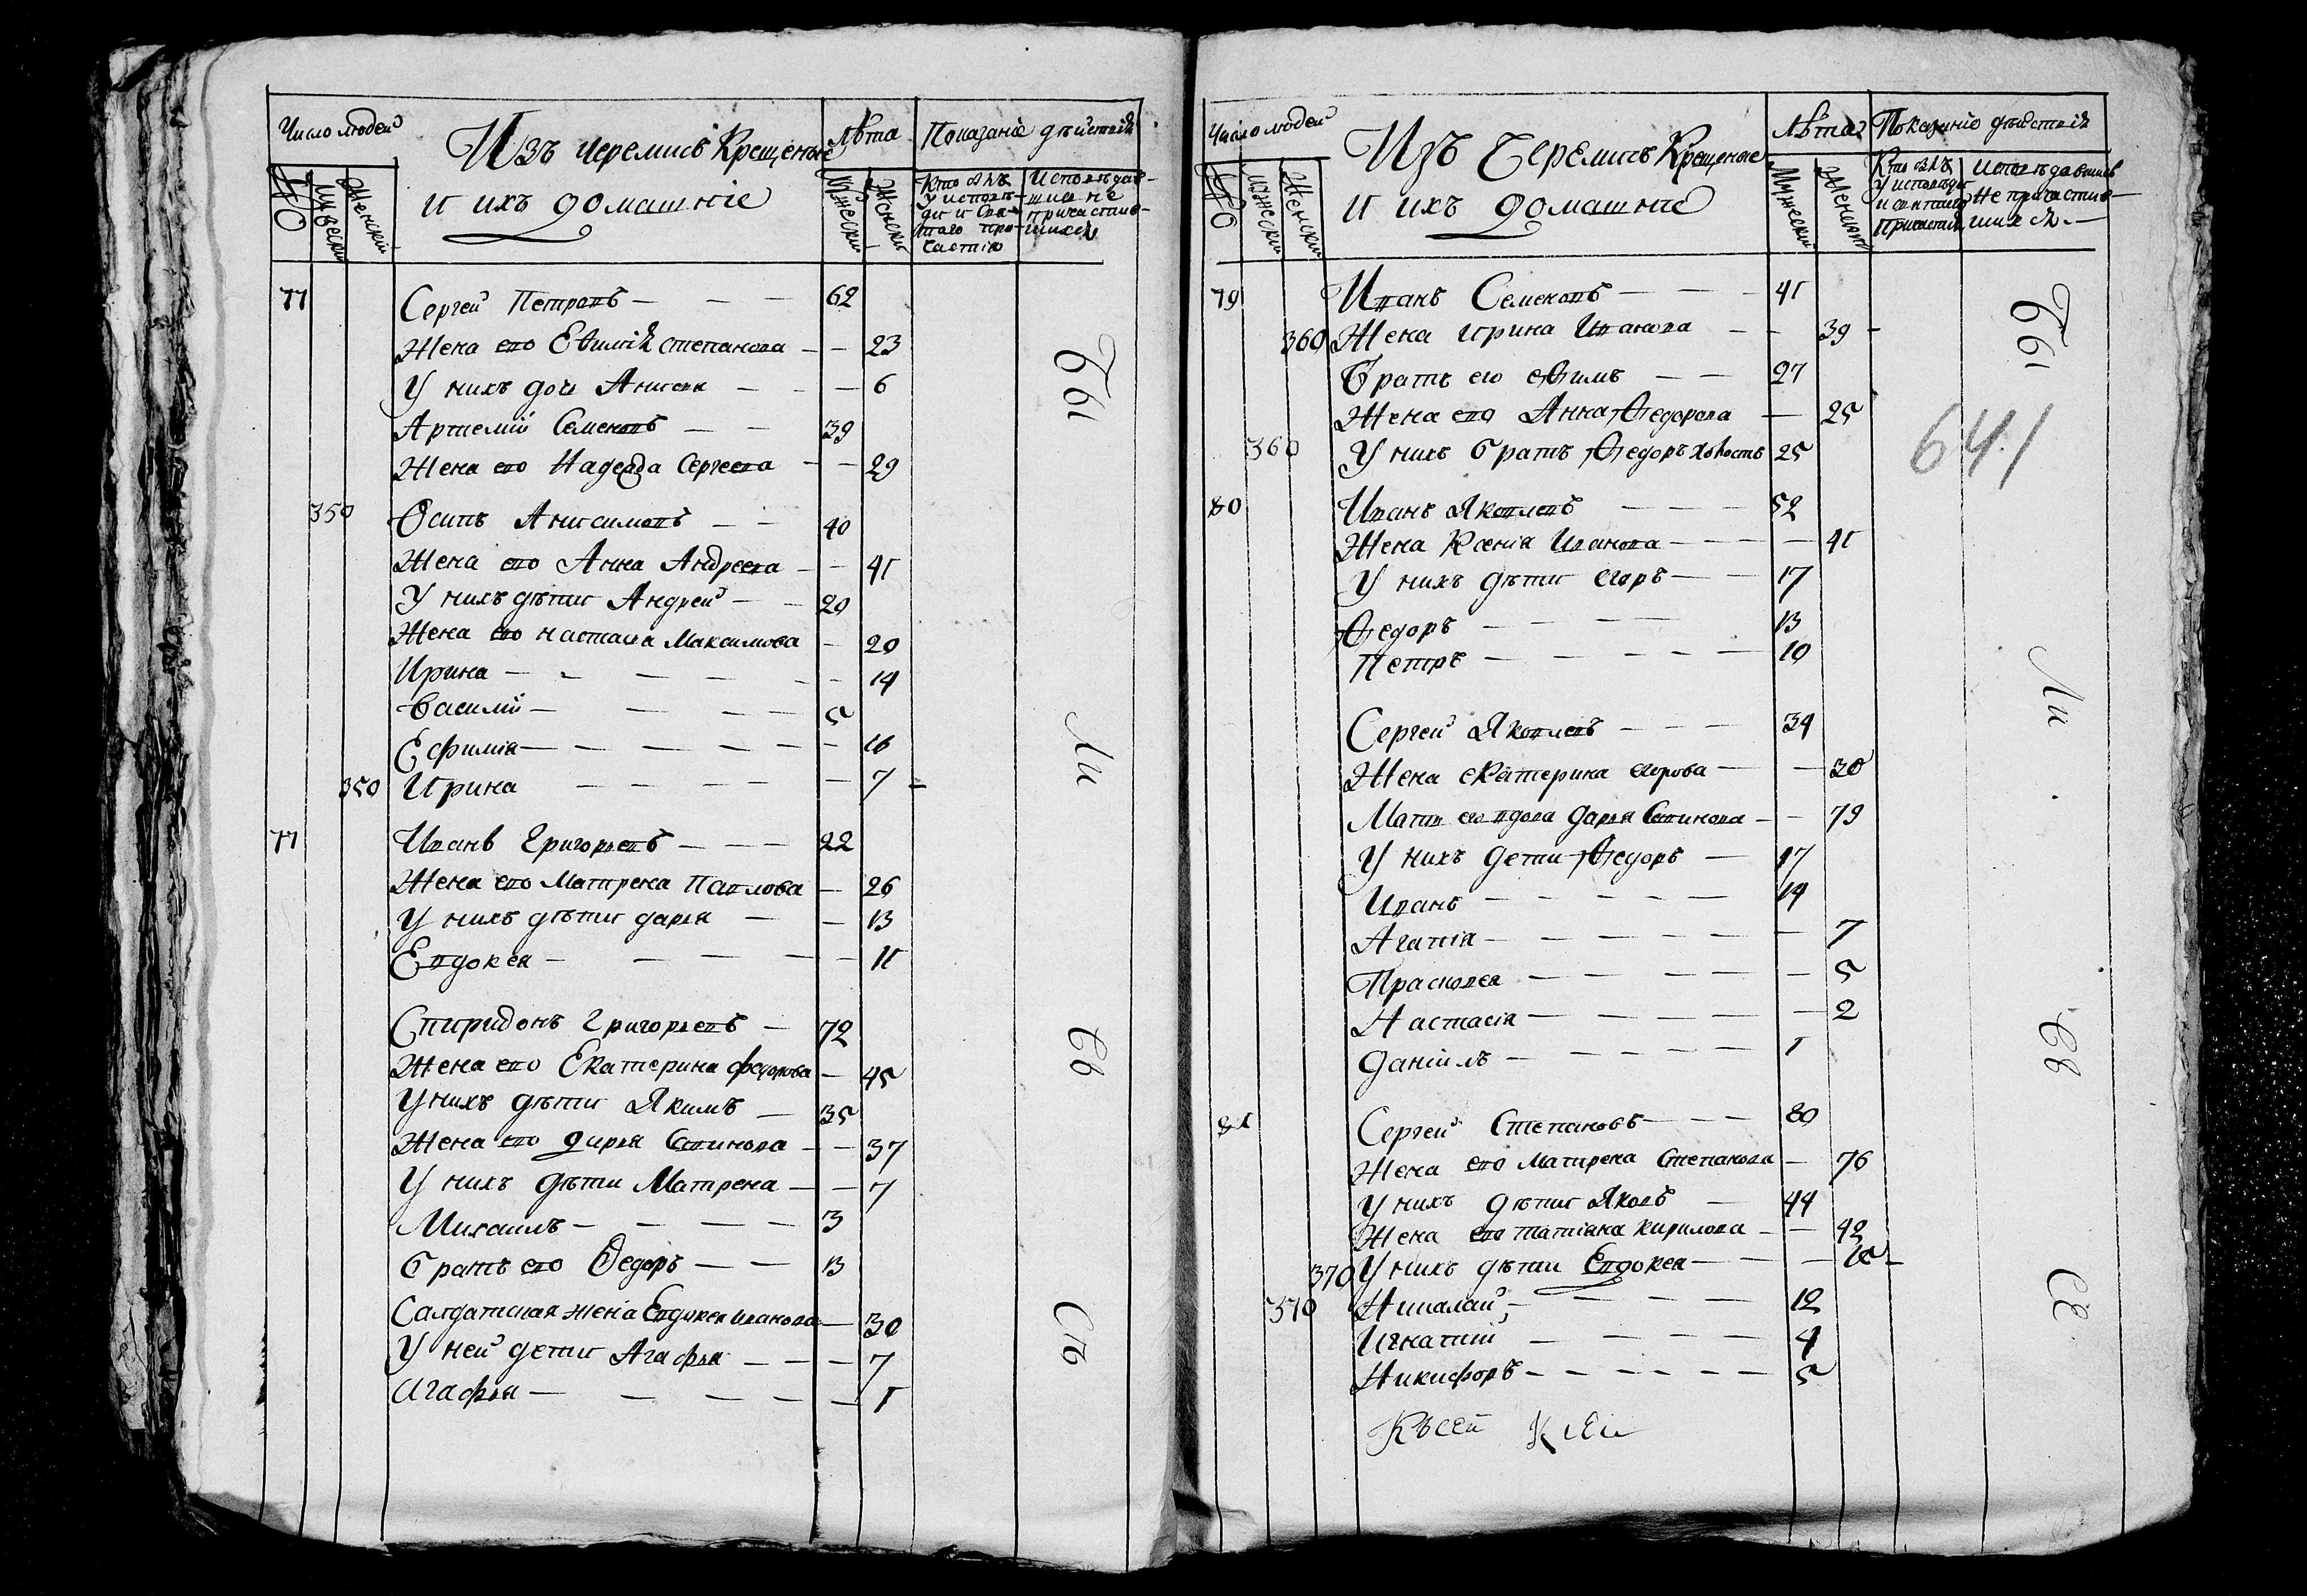 Число людей
Изъ черемисъ Крещеные
Лѣта
Показаніе дѣйствія
и ихъ домашніе
Мужескій
Женскій
Мужескій
Женскій
Кто былъ
у исповѣ-
ди и Свя-
таго при-
частія
Исповѣдав-
шися не
причастив-
шихся
77 Сергей Петровъ — — — 62
Жена его Евѳимія степанова — — 23
У нихъ дочь Анисья — — — 6
Артемій Семеновъ — — 39
Жена его Надежда Сергеева — — 29
350 Осипъ Анисимовъ — — 40
Жена его Анна Андреева — — 41
У нихъ дѣти Андрей — — 20
Жена его настасья Максимова — 20
Ирина — — — — — — 14
Василій — — — — 5
Ефимія — — — — — — — 16
350 Ирина — — — — — 7 —
77 Иванъ Григорьевъ — — — 22
Жена его Матрена Павлова — 26
У нихъ дѣти дарья — — 13
Евдокея — — — — — 11
Спиридонъ Григорьевъ — 72
Жена его Екатерина федорова — 45
У нихъ дѣти Якимъ — 35
Жена его дарья Савинова — — 37
У нихъ дѣти Матрена — — 7
Михаилъ — — — — 3
Братъ его Ѳедоръ — — 13
Салдатская жена Евдокея иванова — 30
У ней дети Агафья — — — 7
Агафья — — — — — 1
Бы
Ли
Св
Сть
Число людей
Изъ Черемисъ Крещеные
Лѣта
Показаніе дѣйствія
и ихъ домашніе
Мужескій
Женскій
Мужескій
Женскій
Кто былъ
у исповѣди
и святаго
Причастія
исповѣдавшися
Не причастив-
шихся —
79 Иванъ Семеновъ — — — 41
360 Жена ирина Иванова — — 39 —
Братъ его Ѳимъ — — 27
Жена его Анна Ѳедорова — 25
360 У нихъ братъ Ѳедоръ холостъ 25
80 Иванъ Яковлевъ — — — 52
Жена Ксенія Иванова — — — — 41
У нихъ дѣти егоръ — — 17
Ѳедоръ — — — — 13
Петръ — — — — — 10
Сергей Яковлевъ — — — 34
Жена екатерина егорова — — 30
Мать его вдова дарья Савинова — — 79
У нихъ дети Ѳедоръ — 17
Иванъ — — — — — 14
Агапія — — — — — — 7
Прасковея — — — — — 5
Настасія — — — — — — 2
даніилъ — — — — — 1
81 Сергей Степановъ — — — 80
Жена его Матрена Степанова — 76
У нихъ дѣти Яковъ — 44
Жена его татіана кирилова — — 42
370 У нихъ дѣти Евдокея — — —
370 Николай — — — — 12
Игнатій — — — — 4
Никифоръ — — — — — 5
Бы
641
Ли
Св